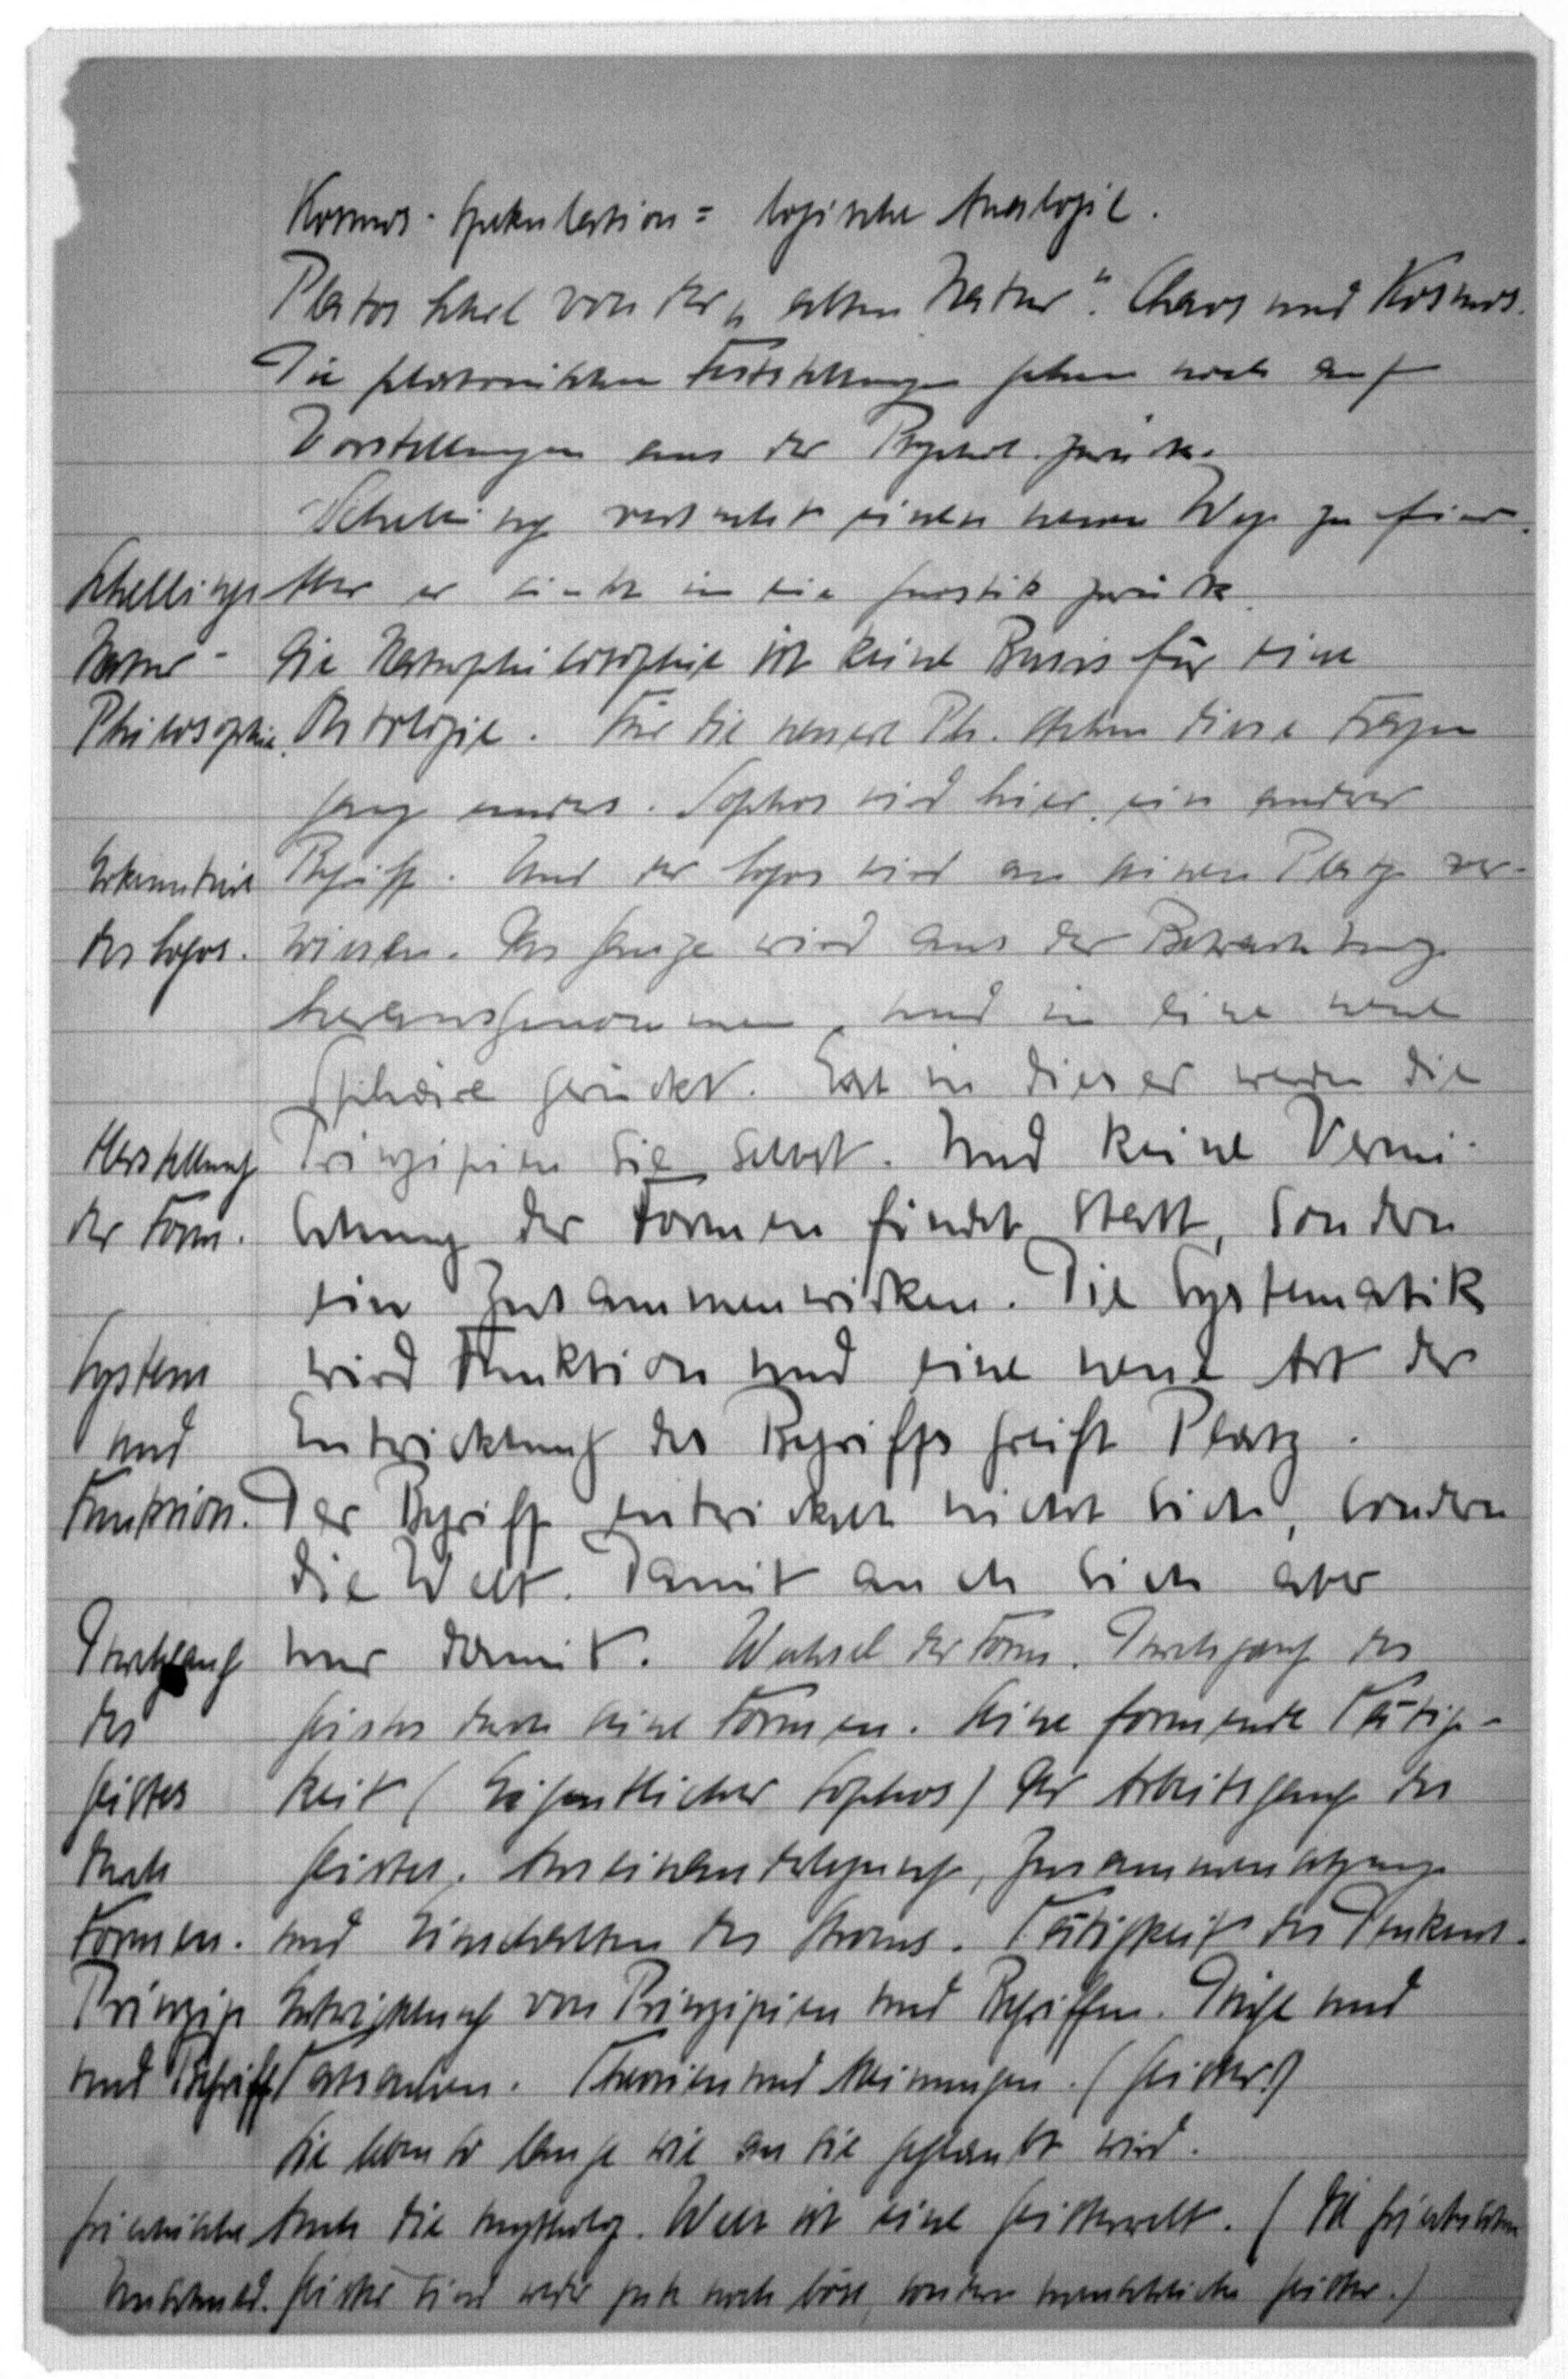 Kosmos-Spekulation = logische Analogie.
Platos Lehre von der „alten Natur“. Chaos und Kosmos.
Die platonischen Feststellungen gehen noch auf
Vorstellungen aus der zurück.
Schelling versucht einen neuen Weg zu
Schellings Aber er sinkt in die Gnostik zurück.
Natur- Die Naturphilosophie ist keine Basis für eine
Philosophie. Ontologie. Für die neuere Ph. stehen diese Fragen
ganz anders. Sophos wird hier ein andrer
Erkenntnis Begriff. Und der Logos wird an seinen Platz ver-
des Logos. wiesen. Das Ganze wird aus der Betrachtung
herausgenommen, und in eine neue
Sphäre gerückt. Erst in dieser werden die
Herstellung Prinzipien sie selbst. Und keine Vermi-
der Form. schung der Formen findet statt, sondern
ein Zusammenwirken. Die Systematik
System wird Funktion und eine neue Art der
und Entwicklung des Begriffs greift Platz.
Funktion. Der Begriff entwickelt nicht sich, sondern
die Welt. Damit auch sich aber
Durchgang nur damit. Wechsel der Form. Durchgang des
des Geistes durch seine Formen. Seine formende Tätig-
Geistes keit (Eigentlicher Sophos) Der Arbeitsgang des
durch Geistes. Auseinanderlegung, Zusammensetzung
Formen. und Einschalten des Stroms. Tätigkeit des Denkens.
Prinzip Entwicklung von Prinzipien und Begriffen. Dinge und
und Begriff Tatsachen. Theorien und Meinungen. (Geister!)
Sie leben so lange wie an sie geglaubt wird.
Griechische Auch die mytholog. Welt ist eine Geisterwelt. (Die griechischen
Unschuld. Geister sind weder gute noch böse, sondern menschliche Geister.)